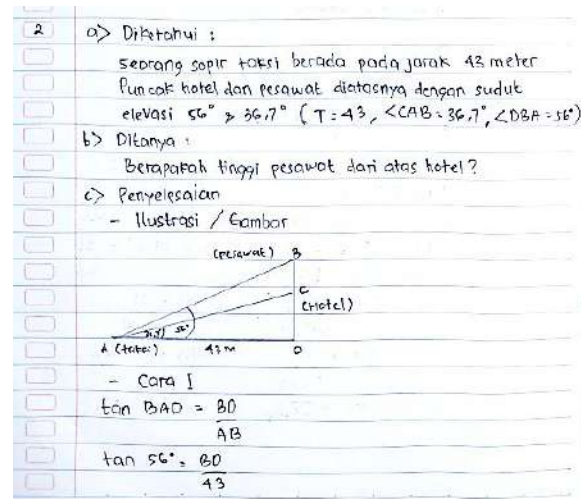 2 a> Diketahui :
seorang sopir taksi berada pada jarak 43 meter
Puncak hotel dan pesawat diatasnya dengan sudut
elevasi 56° & 36,7° ( T = 43, ∠CAB = 36,7°, ∠DBA = 56°)
b> Ditanya :
Berapakah tinggi pesawat dari atas hotel?
c> Penyelesaian
- Ilustrasi / Gambar
(pesawat) B
C
(Hotel)
36,7° 56°
A (taksi) 43 m D
- Cara I
tan BAD = BD
AB
tan 56° = BD
43